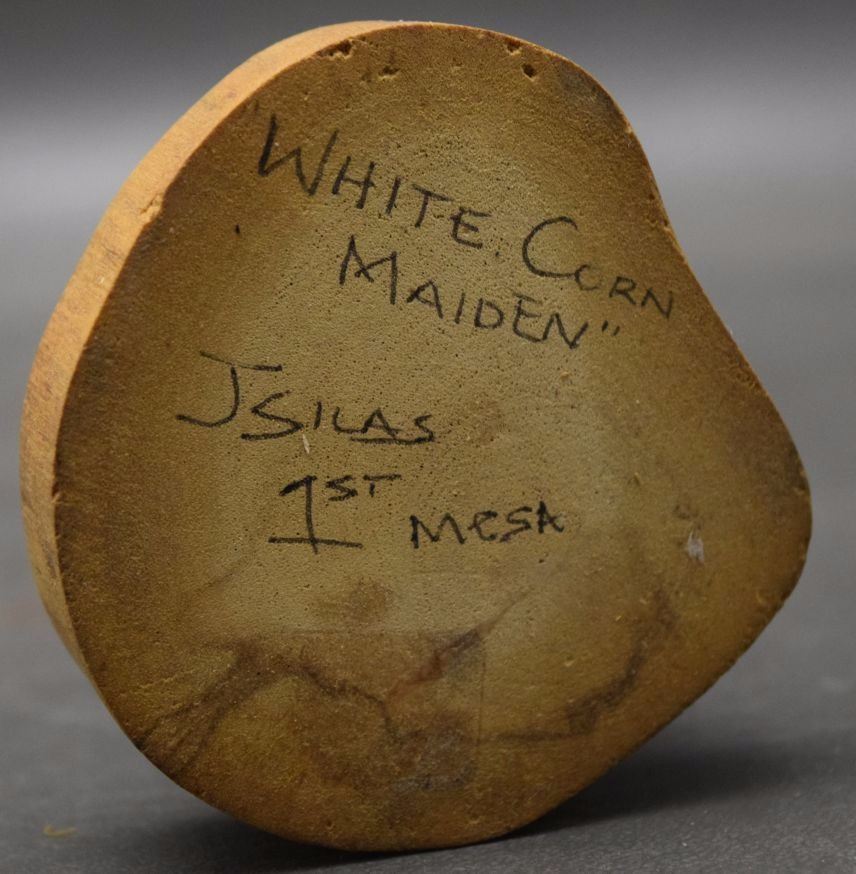 "WHITE CORN
MAIDEN"
J SILAS
1ST MESA